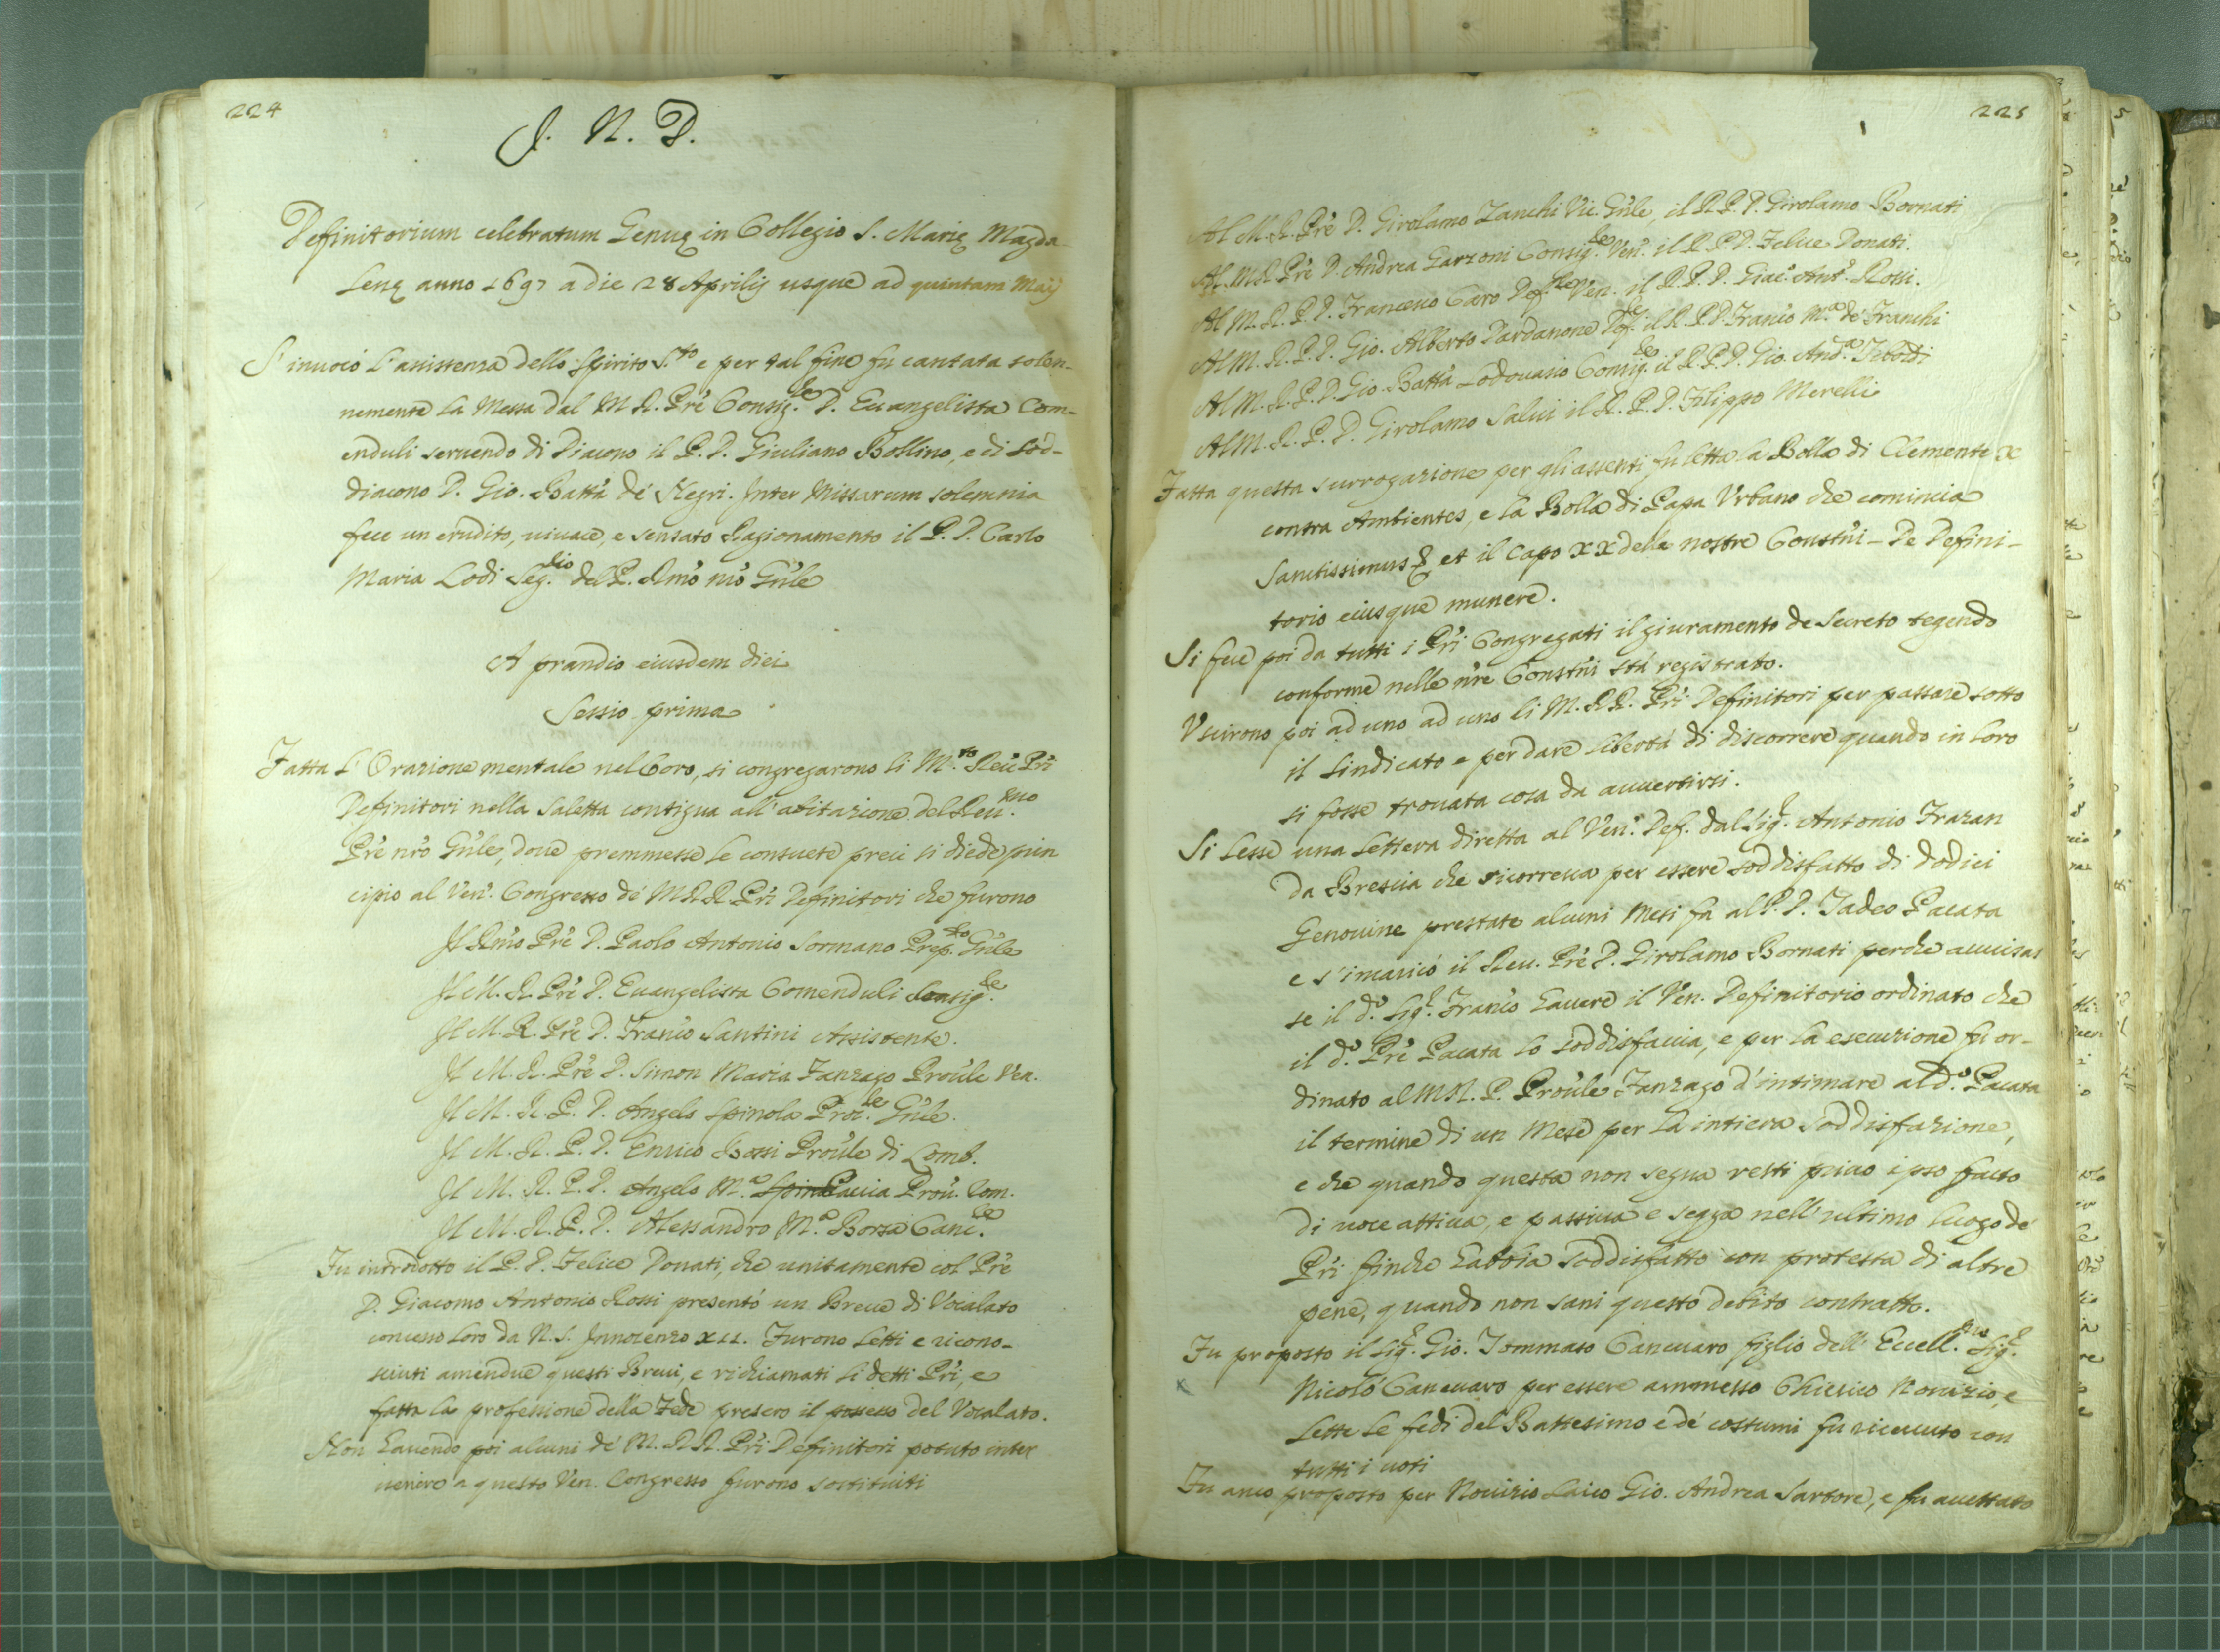 224
J. N. D.
Definitorium celebratum Genuę in Collegio S. Marię Magda-
lenę anno 1697 a die 28 Aprilis usque ad quintam Maij
S'invocò l'assistenza dello Spirito S.to e per tal fine fu cantata solen-
nemente la Messa dal M. R. Prē Consig.re D. Evangelista Com-
enduli servendo di Diacono il P. D. Giuliano Bollino, e di Sod-
diacono D. Gio. Batta de' Negri. Inter Missarum solemnia
fece un erudito, vivace, e sensato Ragionamento il P. D. Carlo
Maria Lodi Seg.rio del P. Rmo nrō Gnle
A prandio eiusdem diei
Sessio prima
Fatta l'Orazione mentale nel Coro, si congregarono li M.to Reu Pri
Definitori nella saletta contigua all'abitazione del Reu.mo
Prē nrō Gnle, doue premmesse le consuete preci si diede prin
cipio al Ven. Congresso de' M.RR. Pri Definitori che furono
Il Rmo Prē D. Paolo Antonio Sormano Prep.to Gnle
Il M. R. Prē D. Evangelista Comenduli Consig.re
Il M. R. Prē D. Franco Santini Assistente.
Il M. R. Prē D. Simon Maria Fanzago Proule Ven.
Il M. R. P. D. Angelo Spinola Proc.re Gnle.
Il M. R. P. D. Enrico Bossi Proule di Lomb.
Il M. R. P. D. Angelo M.a Spin Caccia Prou. Rom.
Il M. R. P. D. Alessandro M.a Borsa Canc.re
Fu introdotto il P. D. Felice Donati, che unitamente col Prē
D. Giacomo Antonio Rossi presentò un Breue di Vocalato
concesso loro da N. S. Innocenzo XII. Furono letti e ricono-
sciuti amendue questi Breui, e richiamati li detti Pri, e
fatta la professione della Fede presero il possesso del Vocalato.
Non hauendo poi alcuni de' M. RR. Pri Definitori potuto inter
venire a questo Ven. Congresso furono sostituiti
225
Al M. R. Prē D. Girolamo Zanchi Vic. Gnle, il R. P. D. Girolamo Bornati
Al M. R. Prē D. Andrea Garzoni Consig.re Ven. il R. P. D. Felice Donati.
Al M. R. P. D. Francesco Caro Def.re Ven. il R. P. D. Giac.o Ant.o Rossi.
Al M. R. P. D. Gio. Alberto Pardanone Def.re il R. P. D. Franco M.a de' Franchi
Al M. R. P. D. Gio. Batta Lodouasio Consig.re il R. P. D. Gio. And.a Tiboldi
Al M. R. P. D. Girolamo Salui il R. P. D. Filippo Merelli
Fatta questa surrogazione per gli assenti, fu letta la Bolla di Clemente X
contra Ambientes, e la Bolla di Papa Vrbano che comincia
Sanctissimus & et il Capo XX delle nostre Constni - De Defini-
torio eiusque munere.
Si fece poi da tutti i Pri Congregati il giuramento de Secreto tegendo
conforme nelle nre Constni stà registrato.
Vscirono poi ad uno ad uno li M. RR. Pri Definitori per passare sotto
il sindicato e per dare libertà di discorrere quando in loro
si fosse trouata cosa da auuertirsi.
Si lesse una lettera diretta al Ven. Def. dal Sig.r Antonio Frazan
da Brescia che ricorreua per essere soddisfatto di dodici
Genouine prestate alcuni Mesi fa al P. D. Tadeo Pacata
e s'incaricò il Reu. Prē D. Girolamo Bornati perche auuisas
se il d.o Sig.r Franco hauere il Ven. Definitorio ordinato che
il d.o Prē Pacata lo soddisfaccia, e per la esecuzione fu or-
dinato al M.R. P. Proule Fanzago d'intimare al d.o Pacata
il termine di un Mese per la intiera soddisfazione,
e che quando questa non segua resti priuo ipso facto
di uoce attiua, e passiua e segga nell'ultimo luogo de'
Pri finche habbia soddisfatto con protesta di altre
pene, quando non sani questo debito contratto.
Fu proposto il Sig.r Gio. Tommaso Caneuaro figlio dell'Eccell.mo Sig.r
x Nicolò Caneuaro per essere ammesso Chierico Nouizio, e
lette le fedi del Battesimo e de' costumi fu riceuuto con
tutti i uoti
Fu anco proposto per Nouizio Laico Gio. Andrea Sartore, e fu accettato